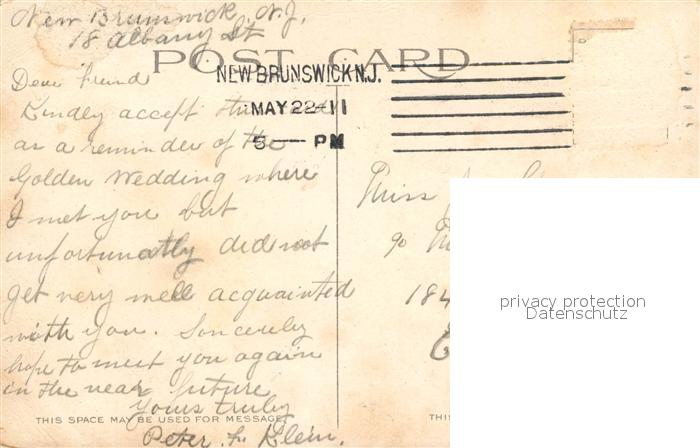 New Brunswick, N.J.
18 Albany St
POST CARD
NEW BRUNSWICK N.J.
MAY 22-11
5 — PM
Dear friend
Kindly accept this
as a reminder of the
Golden Wedding where
I met you but
unfortunatly did not
get very well acquainted
with you. Sincerely
hope to meet you again
in the near future
Yours truly
Peter Klein.
THIS SPACE MAY BE USED FOR MESSAGE
Miss
184
THI
privacy protection
Datenschutz